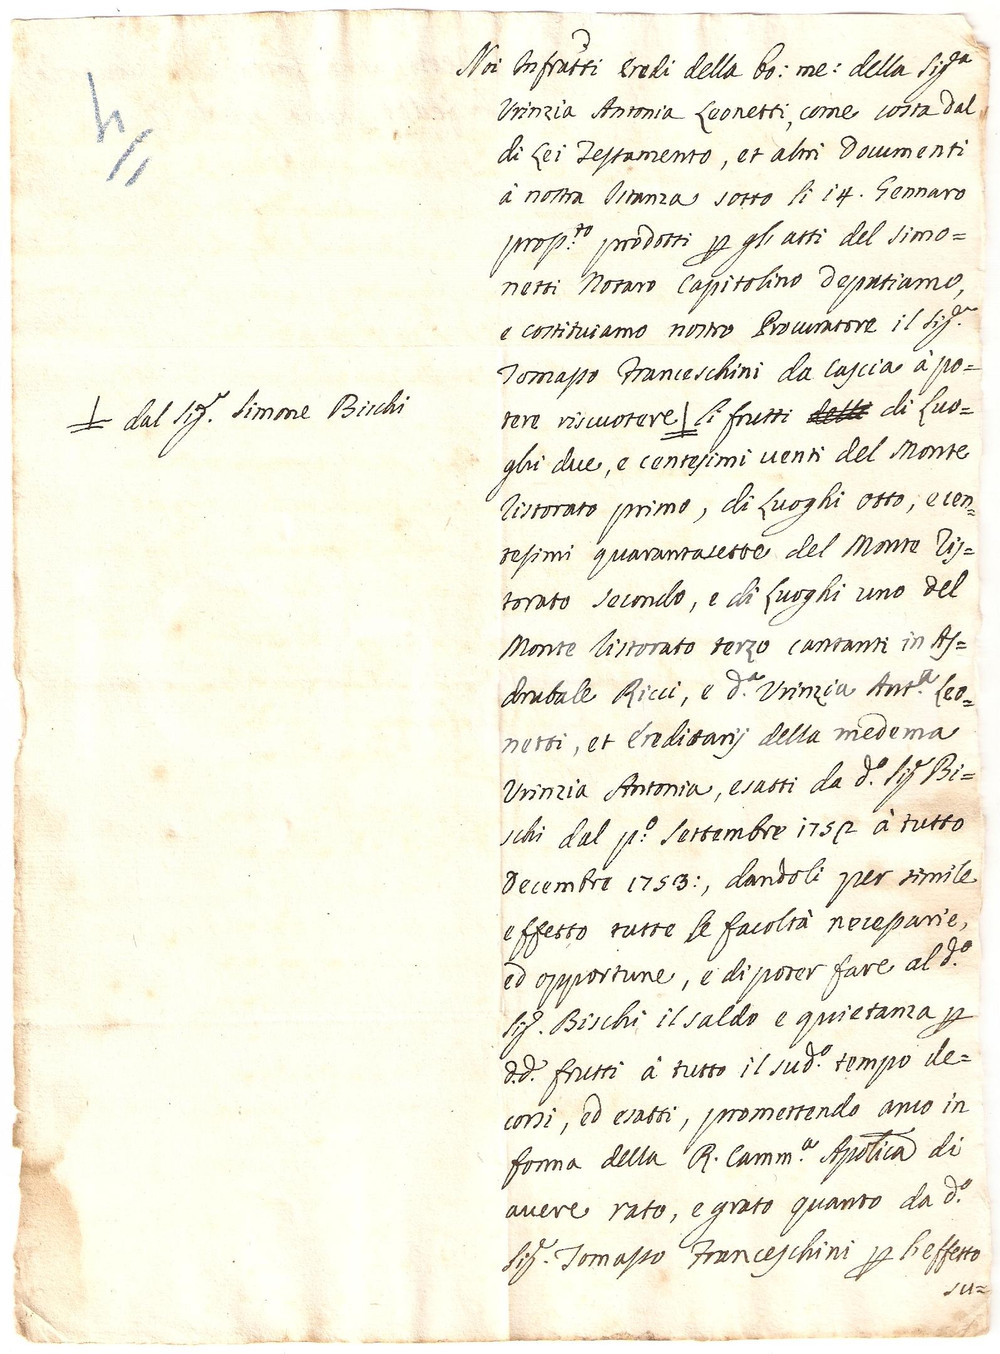 Noi Infratti Eredi della bo: me: della Sigra
Orinzia Antonia Leonetti, come costa dal
di Lei Testamento, et altri Documenti
à nostra Istanza sotto li 14. Gennaro
prossto prodotti p gli atti del Simo=
netti Notaro Capitolino Deputiamo,
e costituiamo nostro Procuratore il Sigr.
Tomasso Franceschini da Cascia à po=
tere riscuotere li frutti delli di Luo=
⊥ dal Sigr. Simone Bischi
ghi due, e centesimi venti del Monte
ristorato primo, di Luoghi Otto, e cen=
tesimi quarantasette del Monte Ris=
torato Secondo, e di Luoghi uno del
Monte ristorato terzo cantanti in As=
drubale Ricci, e da. Orinzia Anta. Leo=
netti, et Ereditarij della medema
Orinzia Antonia, esatti da do. Sigr Bi=
schi dal po. Settembre 1752 à tutto
Decembre 1753:, dandoli per simile
effetto tutte le facoltà necessarie,
ed opportune, e di poter fare al do.
Sigr. Bischi il saldo e quietanza p
dd. frutti à tutto il sudo. tempo de=
corsi, ed esatti, promettendo anco in
forma della R. Camma. Aplica di
avere rato, e grato quanto da do.
Sigr. Tomasso Franceschini p l'effetto
su=